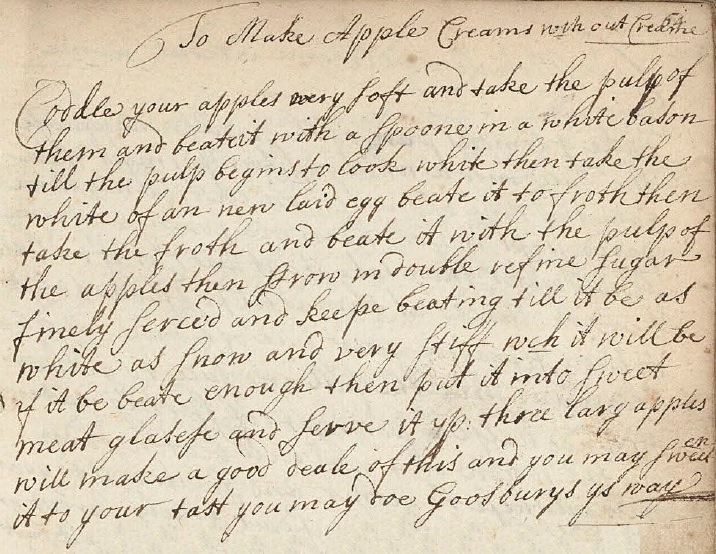 To Make Apple Creams with out Creame
Coddle your apples very soft and take the pulp of
them and beate it with a spoone in a white bason
till the pulp begins to look white then take the
white of an new laid egg beate it to froth then
take the froth and beate it with the pulp of
the apples then strow in double refine sugar
finely serced and keepe beating till it be as
white as snow and very stiff wch it will be
if it be beate enough then put it into sweet
meat glasese and serve it up: three larg apples
will make a good deale of this and you may sweeten
it to your tast you may doe Goosburys ys way